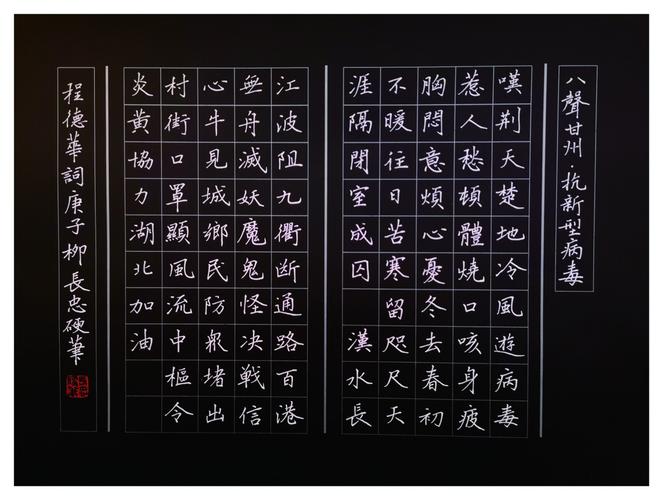 八聲甘州·抗新型病毒
嘆荆天楚地冷風遊病毒
惹人愁頓體燒口咳身疲
胸悶意煩心憂冬去春初
不暖往日苦寒留咫尺天
涯隔閉室成囚 漢水長
江波阻九衢断通路百港
無舟滅妖魔鬼怪决戦信
心牛見城鄉民防衆堵出
村街口罩顯風流中樞令
炎黃協力湖北加油
程德華詞庚子柳長忠硬筆